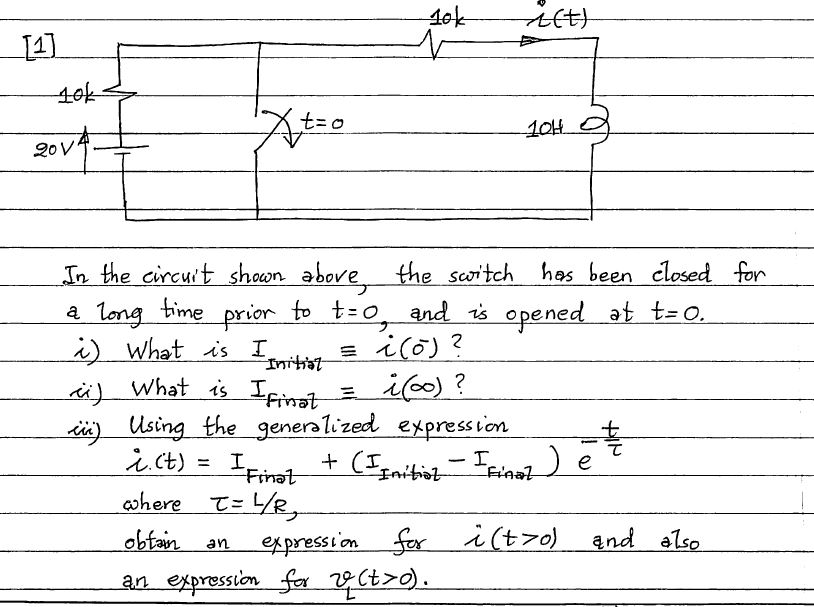 10k i(t)
[1]
10k
t=0
20V
10H
In the circuit shown above, the switch has been closed for
a long time prior to t=0, and is opened at t=0.
i) What is I_Initial ≡ i(0⁻)?
ii) What is I_Final ≡ i(∞)?
iii) Using the generalized expression
i(t) = I_Final + (I_Initial − I_Final) e^(−t/τ)
where τ = L/R,
obtain an expression for i(t>0) and also
an expression for v_L(t>0).